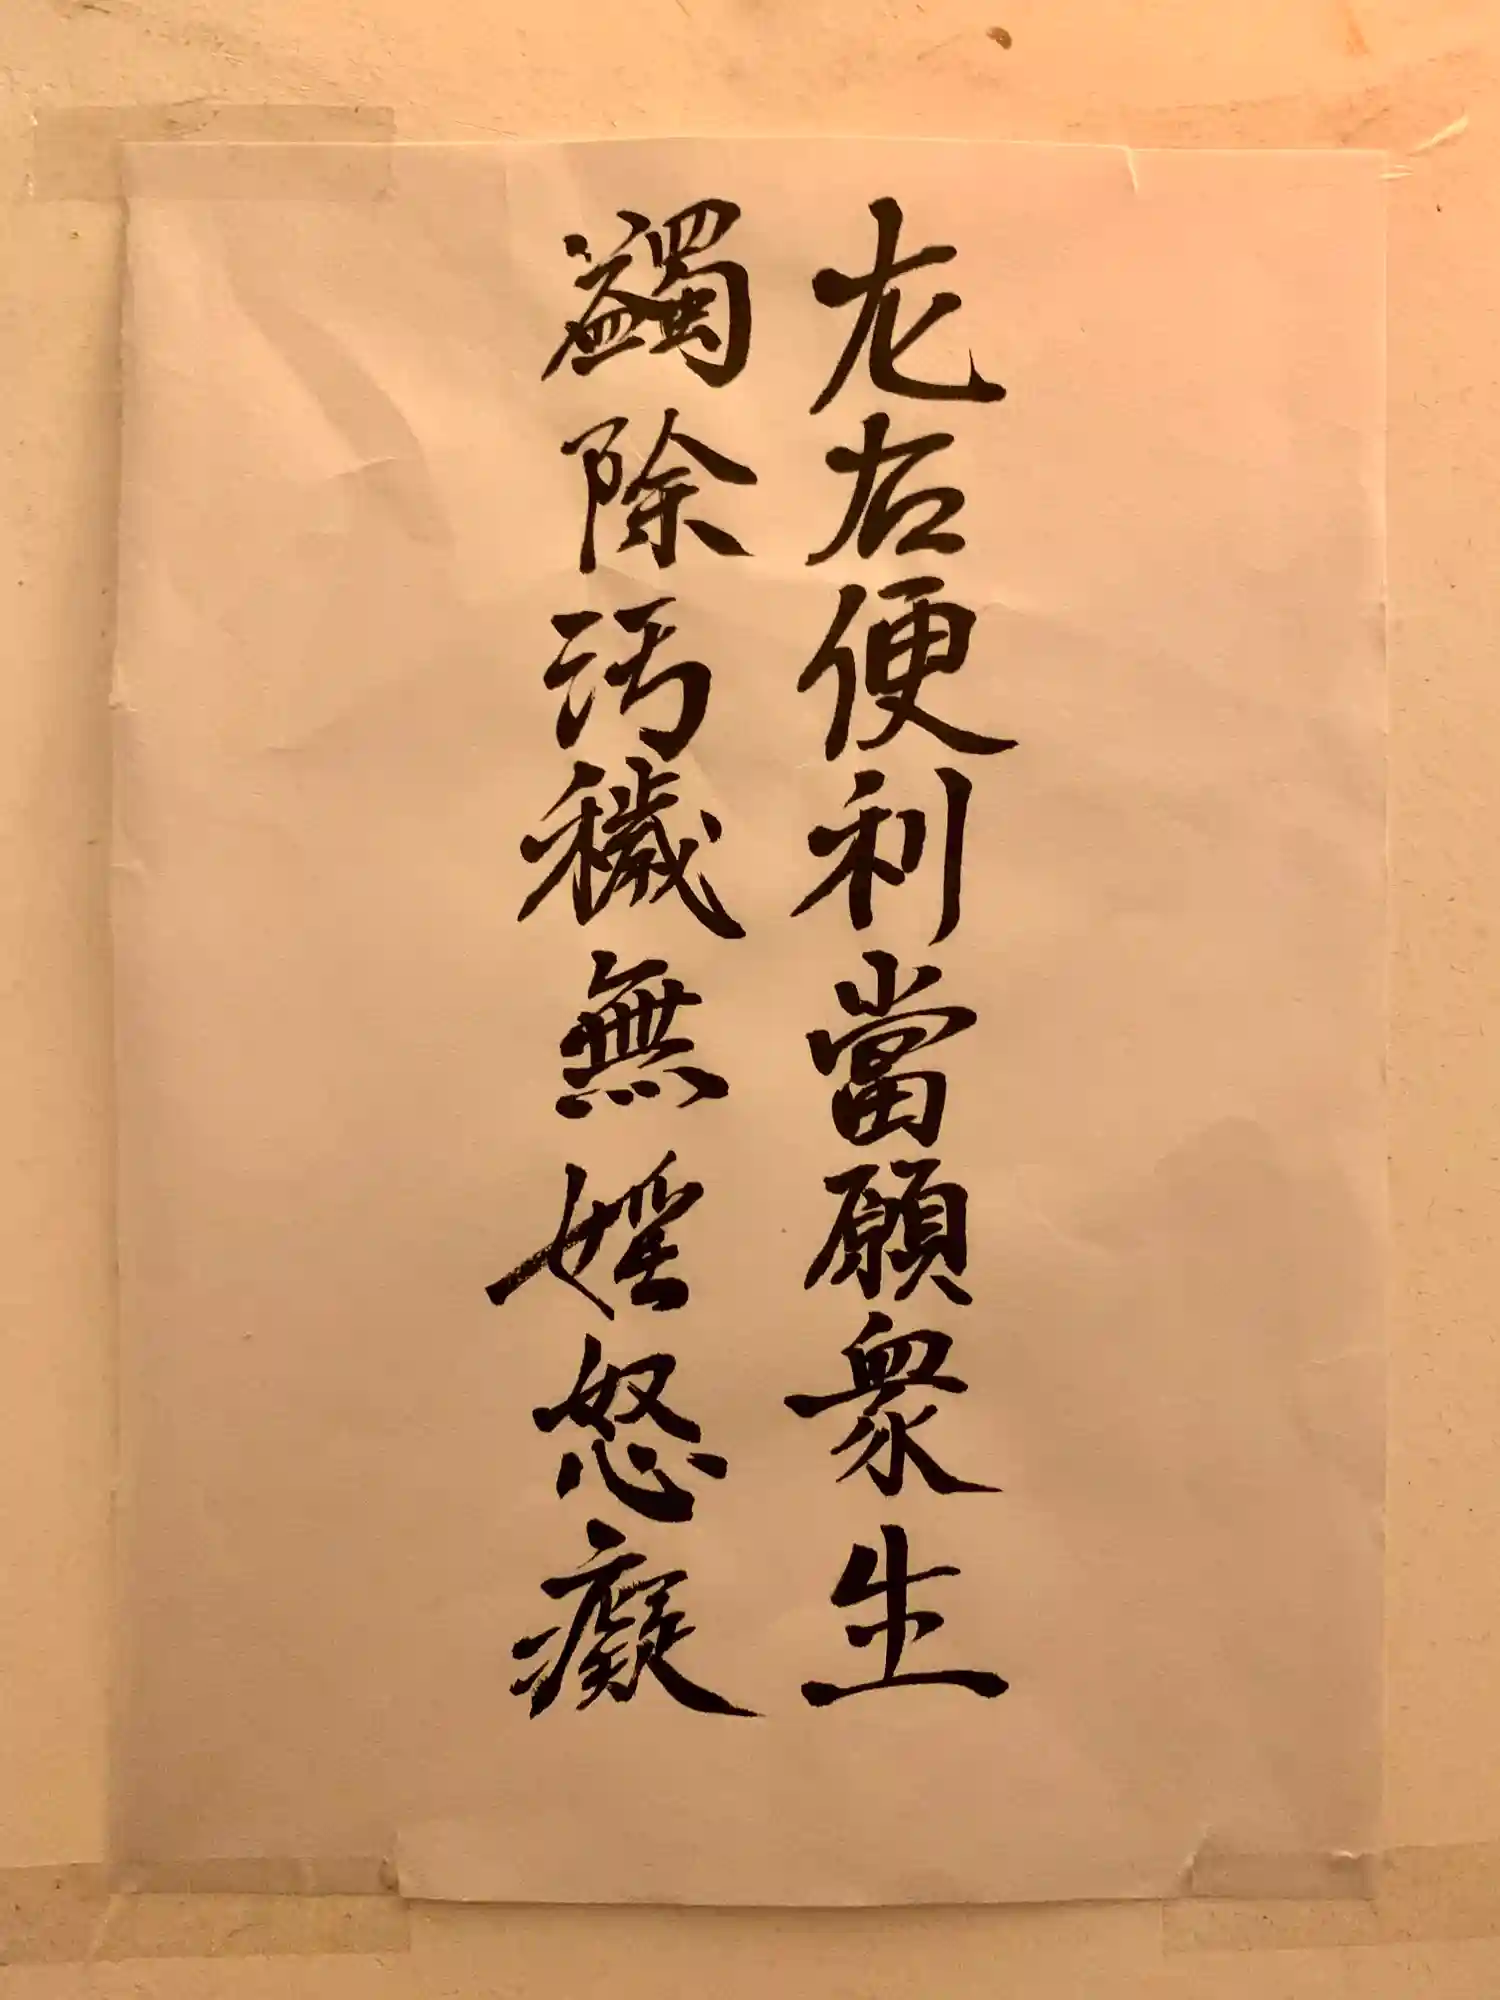 左右便利當願衆生
蠲除污穢無婬怒癡